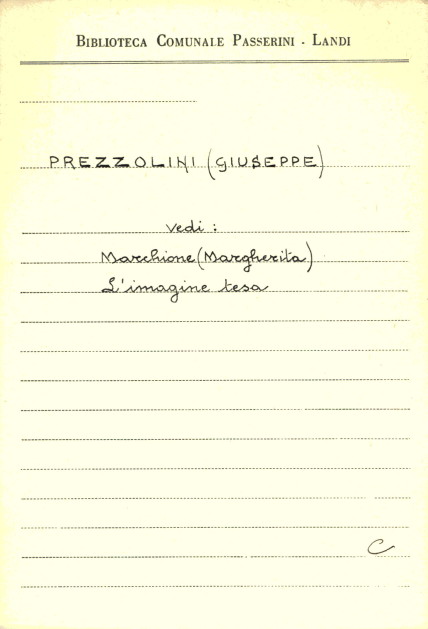 BIBLIOTECA COMUNALE PASSERINI - LANDI
PREZZOLINI (GIUSEPPE)
Vedi :
Marchione (Margherita)
L'imagine tesa
C